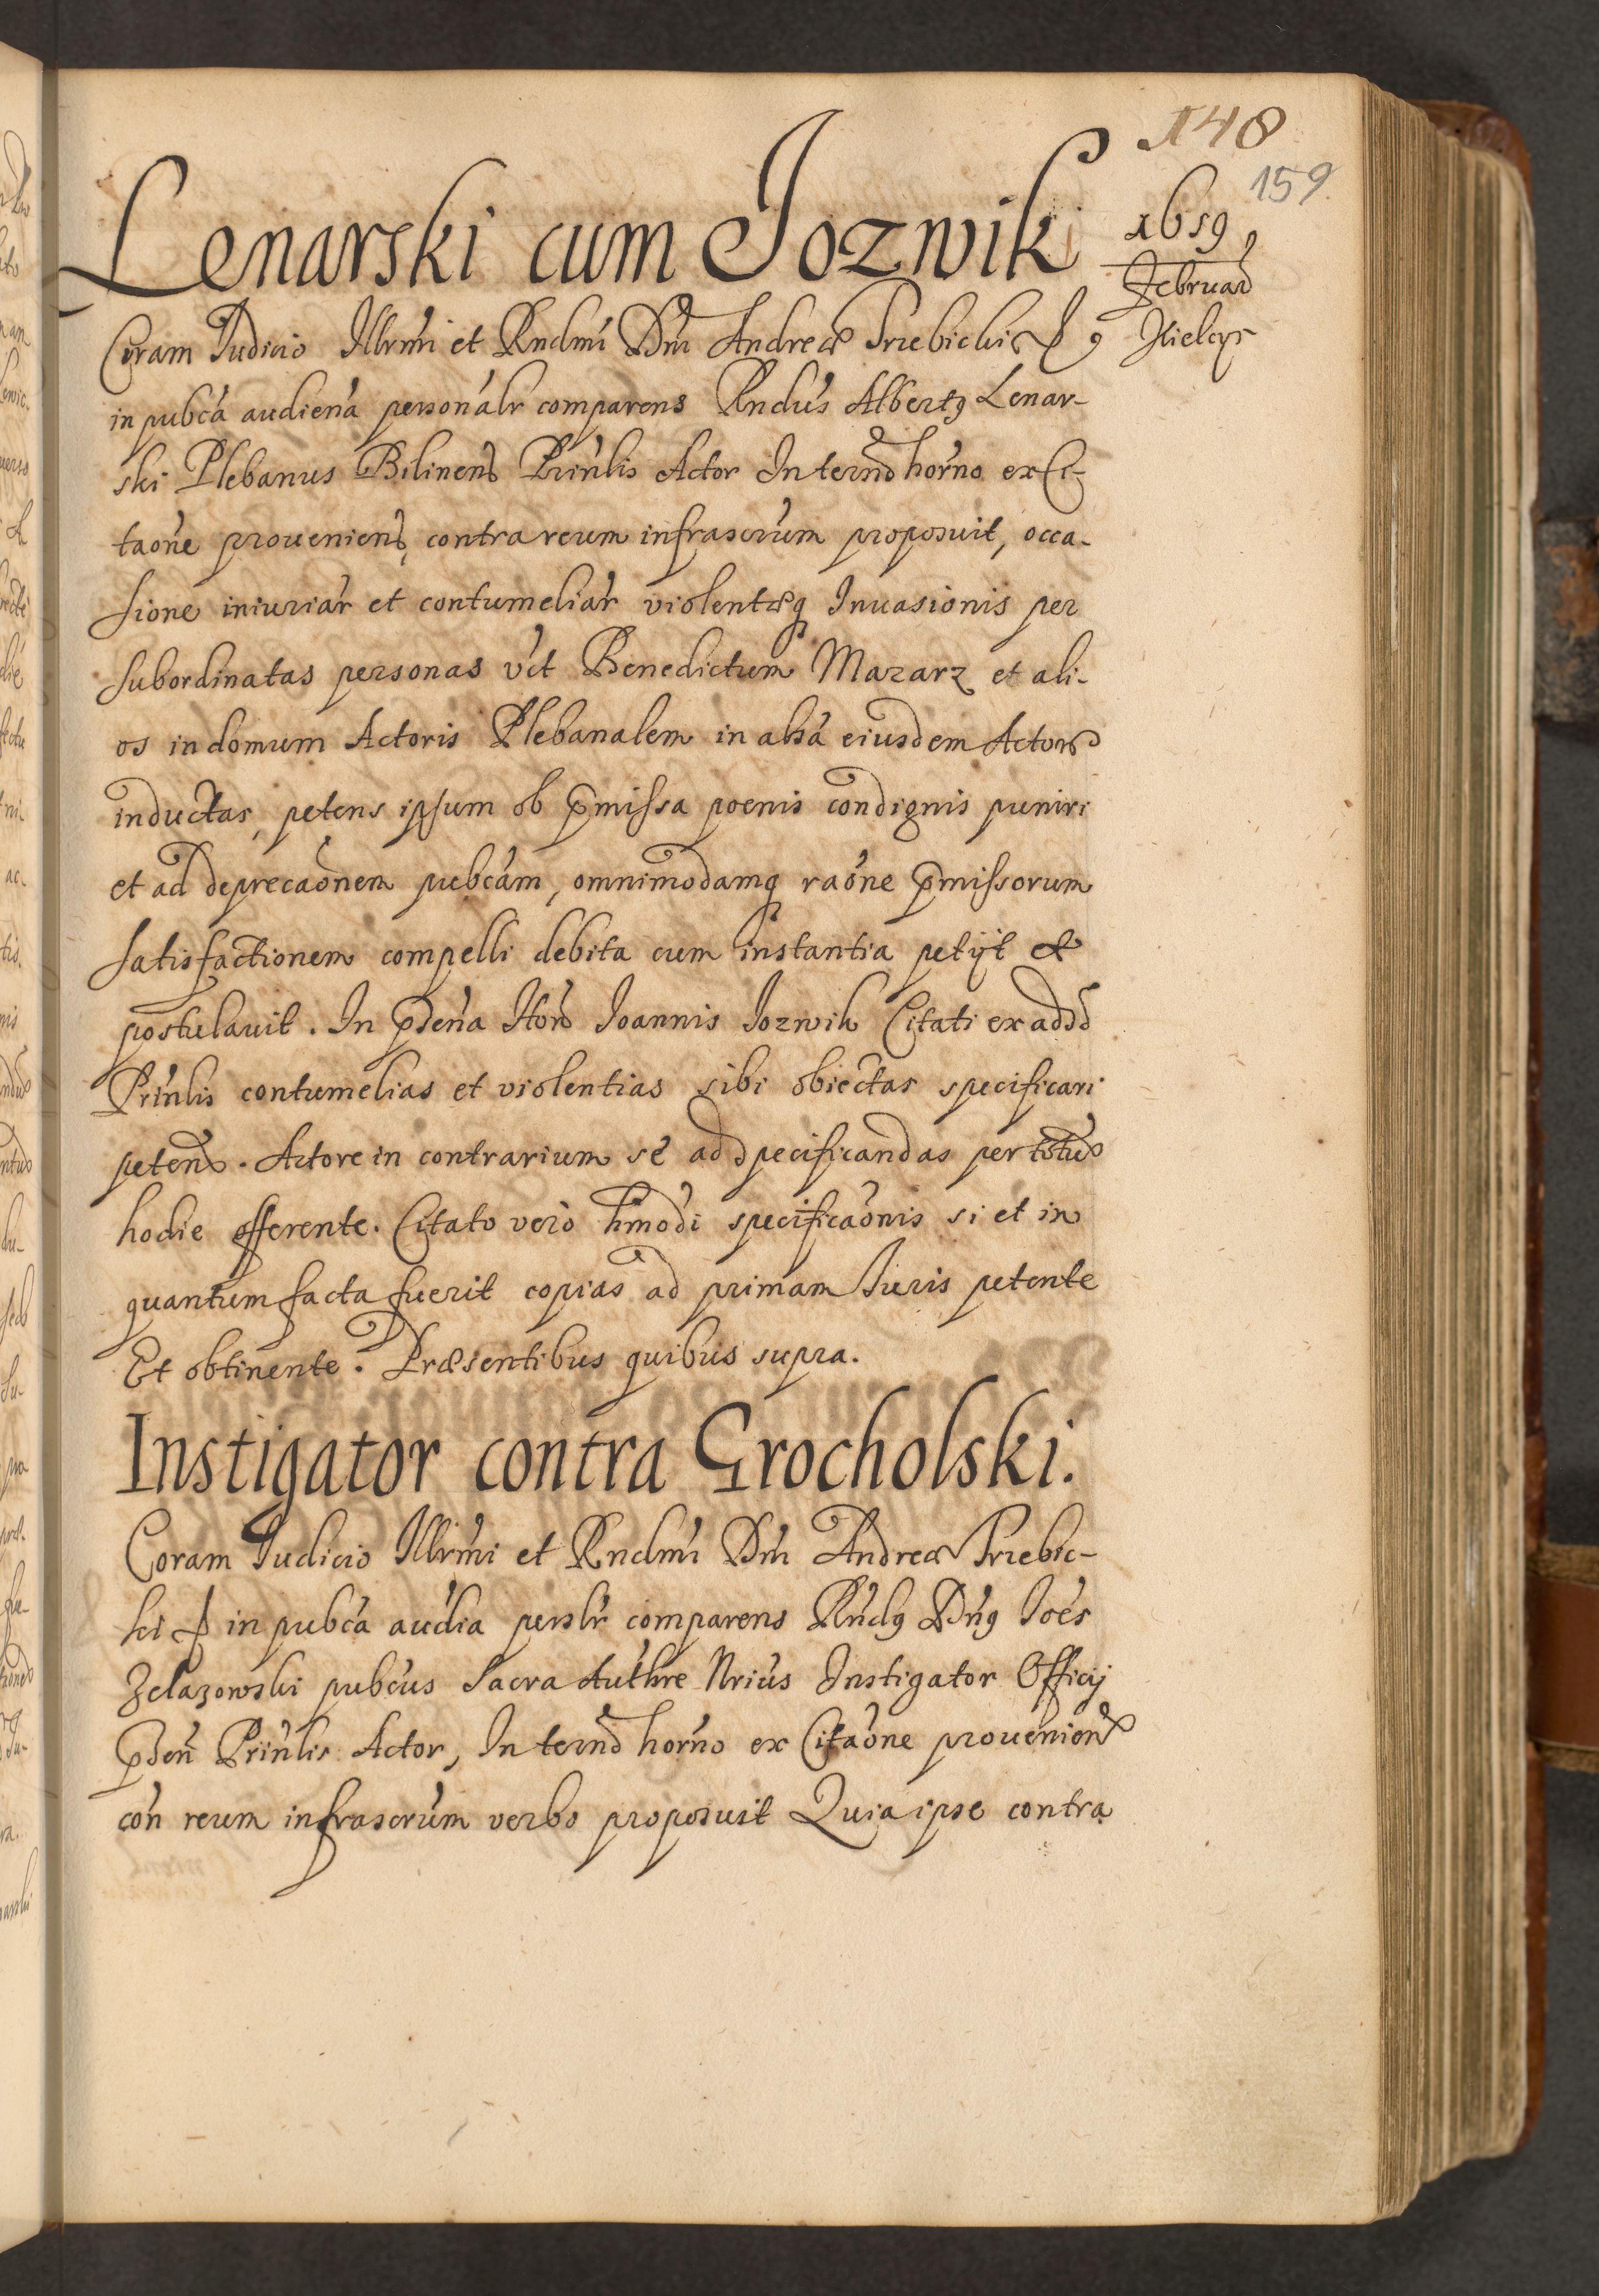 148
159
1659
Februar
Kielcys
Lenarski cum Jozwik
Coram Judicio Illrmi et Rndmi Dni Andreæ Trzebicki
in pubca audiena personalr comparens Rndus Albertꝯ Lenar-
ski Plebanus Bilinens Prinlis Actor In termo horno ex Ci-
taone proueniens, contra reum infrascrum proposuit, occa-
sione iniuriar et contumeliar violentæq Inuasionis per
subordinatas personas vct Benedictum Mazarz et ali-
os in domum Actoris Plebanalem in absa eiusdem Actoris
inductas, petens ipsum ob pmissa poenis condignis puniri
et ad deprecaonem pubcam, omnimodamq raone pmissorum
satisfactionem compelli debita cum instantia petijt et
postulauit. In pdena Hon Joannis Jozwik Citati ex add
Prinlis contumelias et violentias sibi obiectas specificari
peten. Actore in contrarium se ad specificandas per totu
hodie offerente. Citato vero hmodi specificaonis si et in
quantum facta fuerit copias ad primam Juris petente
Et obtinente. Præsentibus quibus supra.
Instigator contra Grocholski.
Coram Judicio Illrmi et Rndmi Dni Andreæ Trzebic-
ki in pubca audia perslr comparens Rndꝯ Dnꝯ Joes
Zelazowski pubcus Sacra Authre Nrius Instigator Officij
pden Prinlis Actor, In termo horno ex Citaone prouenien
con reum infrascrum verbo proposuit Quia ipse contra